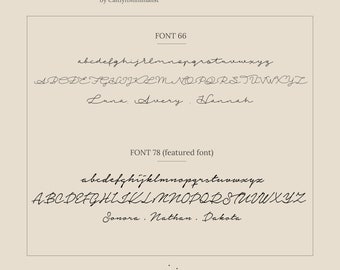 by CaitlynMinimalist
FONT 66
abcdefghijklmnopqrstuvwxyz
ABCDEFGHIJKLMNOPQRSTUVWXYZ
Lana Avery . Hannah
FONT 78 (featured font)
abcdefghijklmnopqrstuvwxyz
ABCDEFGHIJKLMNOPQRSTUVWXYZ
Sonora . Nathan . Dakota